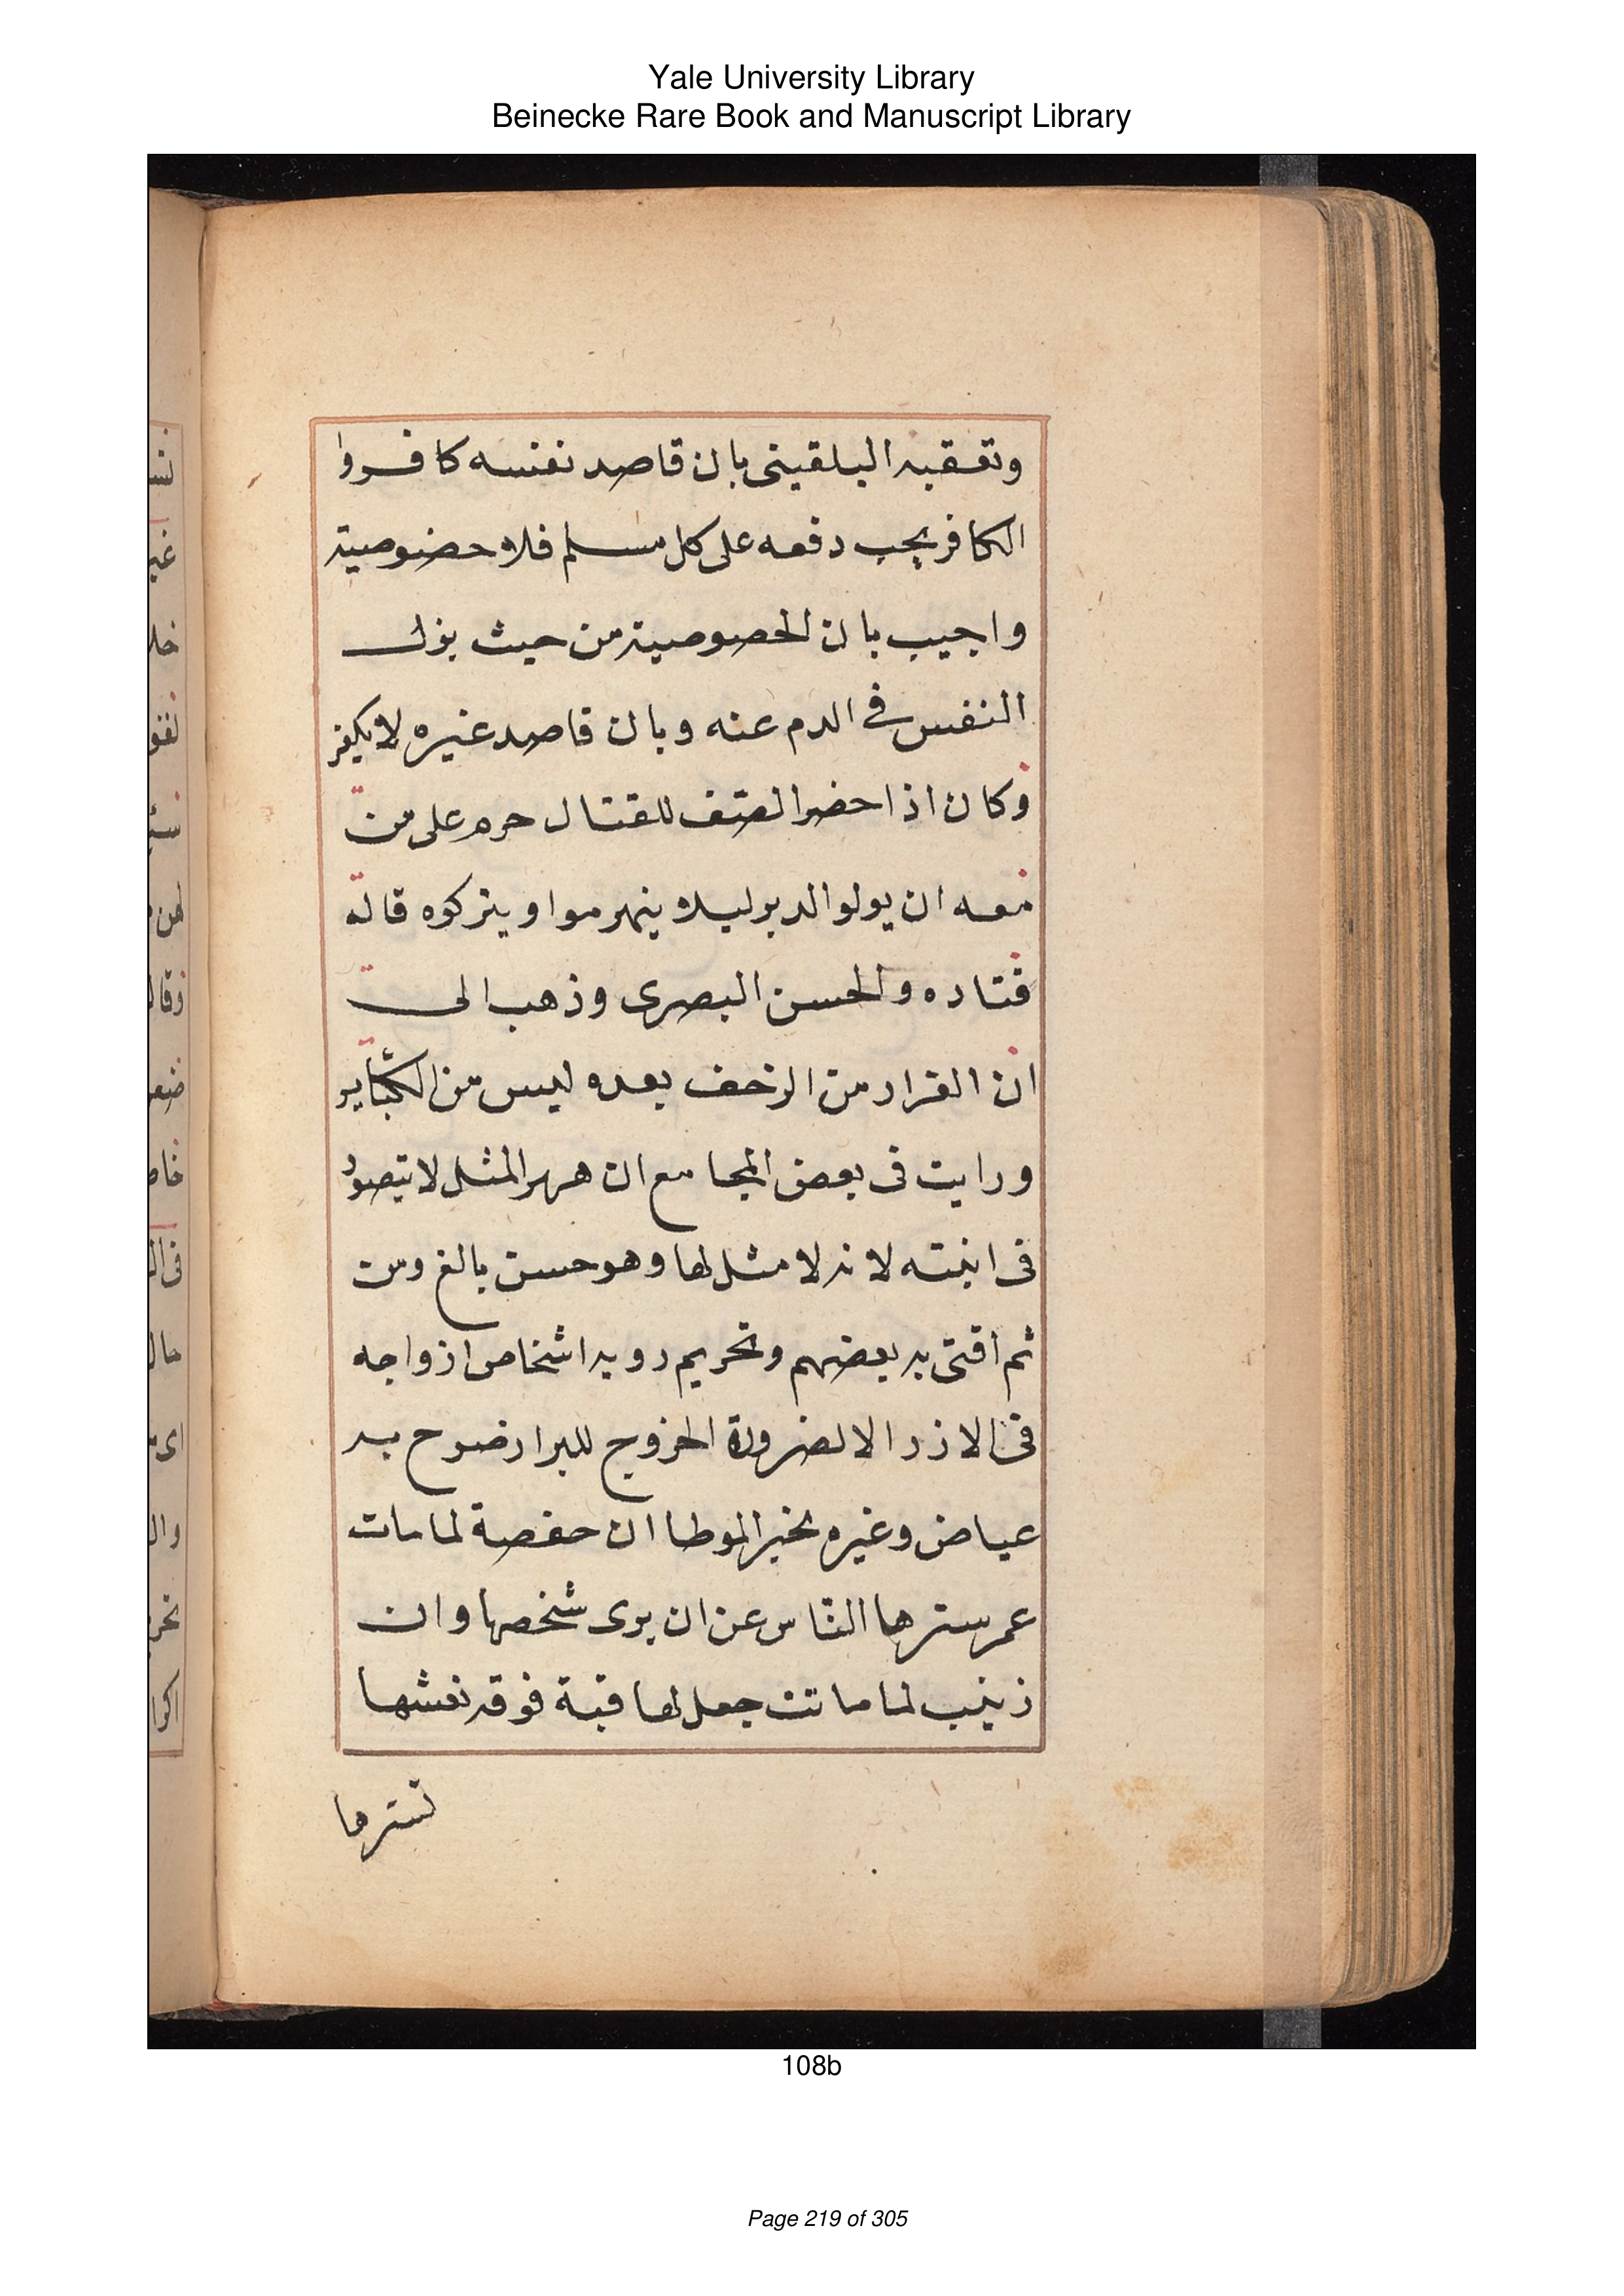 Yale University Library
Beinecke Rare Book and Manuscript Library
وتعقبه البلقينى بان قاصد نفسه كافروا
الكافر يجب دفعه على كل مسلم فلا حضوصية
واجيب بان الخصوصية من حيث بزل
النفس فى الدم عنه وبان قاصد غيره لا يكفر
وكان اذا حضر الصف للقتال حرم على من
معه ان يولوا الدبر ليلا ينهرموا ويتركوه قاله
قتاده والحسن البصرى وذهب الى
ان الفرار من الزحف بعده ليس من الكبئاير
ورايت فى بعض المجامع ان مهر المثل لا يتصور
فى ابنته لانه لا مثل لها وهو حسن بالغ ومن
ثم افتى به بعضهم وتحريم رويه اشخاص ازواجه
فى الازر الا لضرورة الخروج للبراز صرح به
عياض وغيره بخبر الموطا ان حفصة لما مات
عمر سترها الناس عن ان يرى شخصها وان
زينب لما ماتت جعل لها قبة فوق نعشها
تسترها
108b
Page 219 of 305